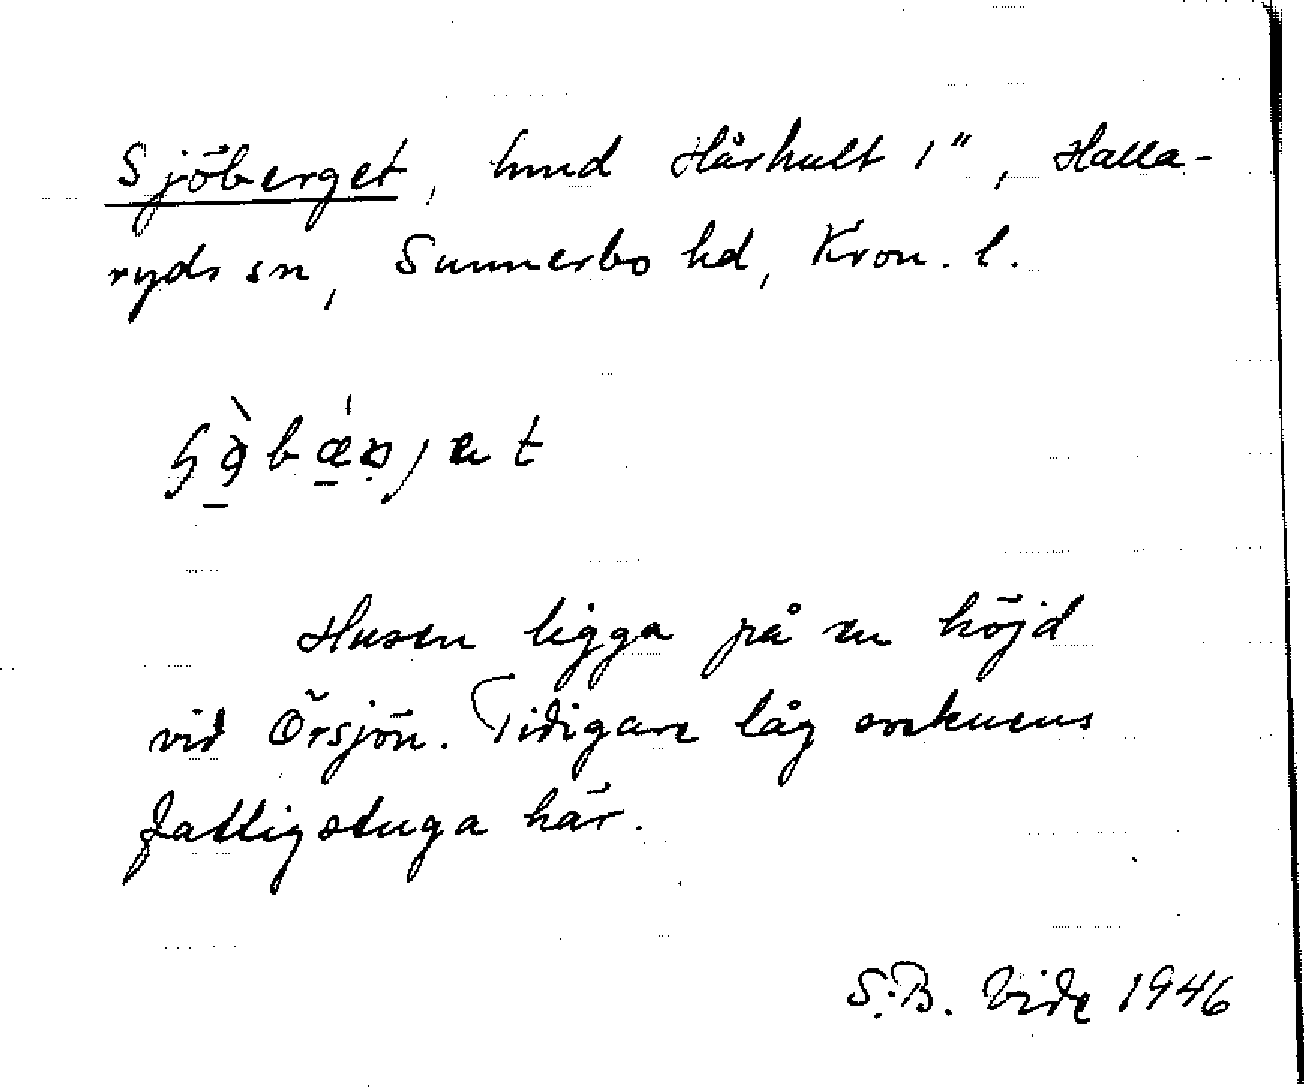 Sjöberget, hmd Hårhult 1", Halla-
ryds sn, Sunnerbo hd, Kron. l.
Husen ligga på en höjd
vid Örsjön. Tidigare låg socknens
fattigstuga här.
S.B. Vide 1946